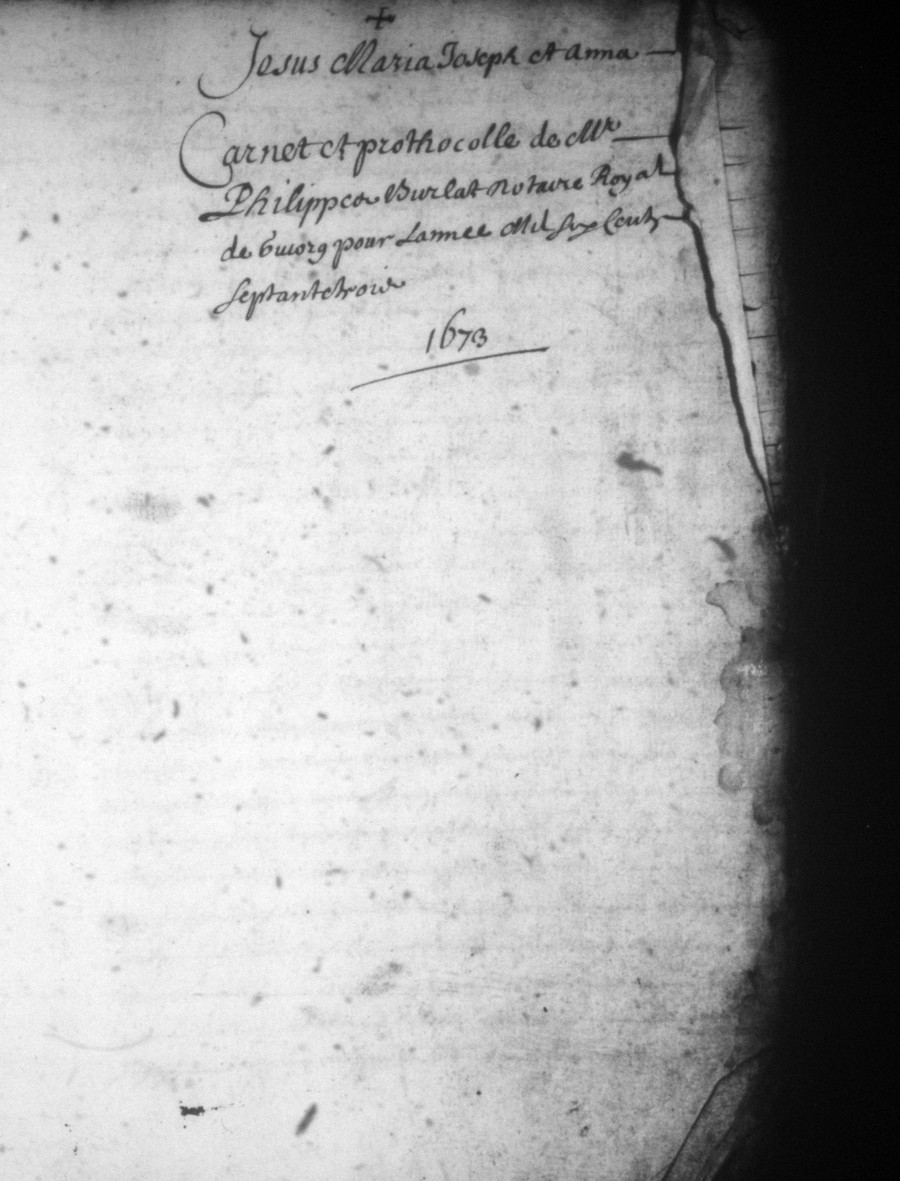 +
Jesus Maria Joseph et Anna
Carnet et prothocolle de Mr
Philippes Burlat Notaire Royal
de pour Lannee Mil six Centz
septantetrois
1673